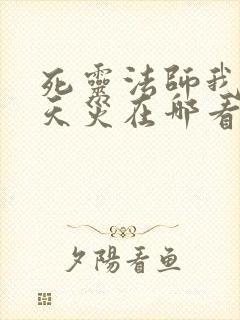 死靈法師我
天災在哪看
夕陽看鱼